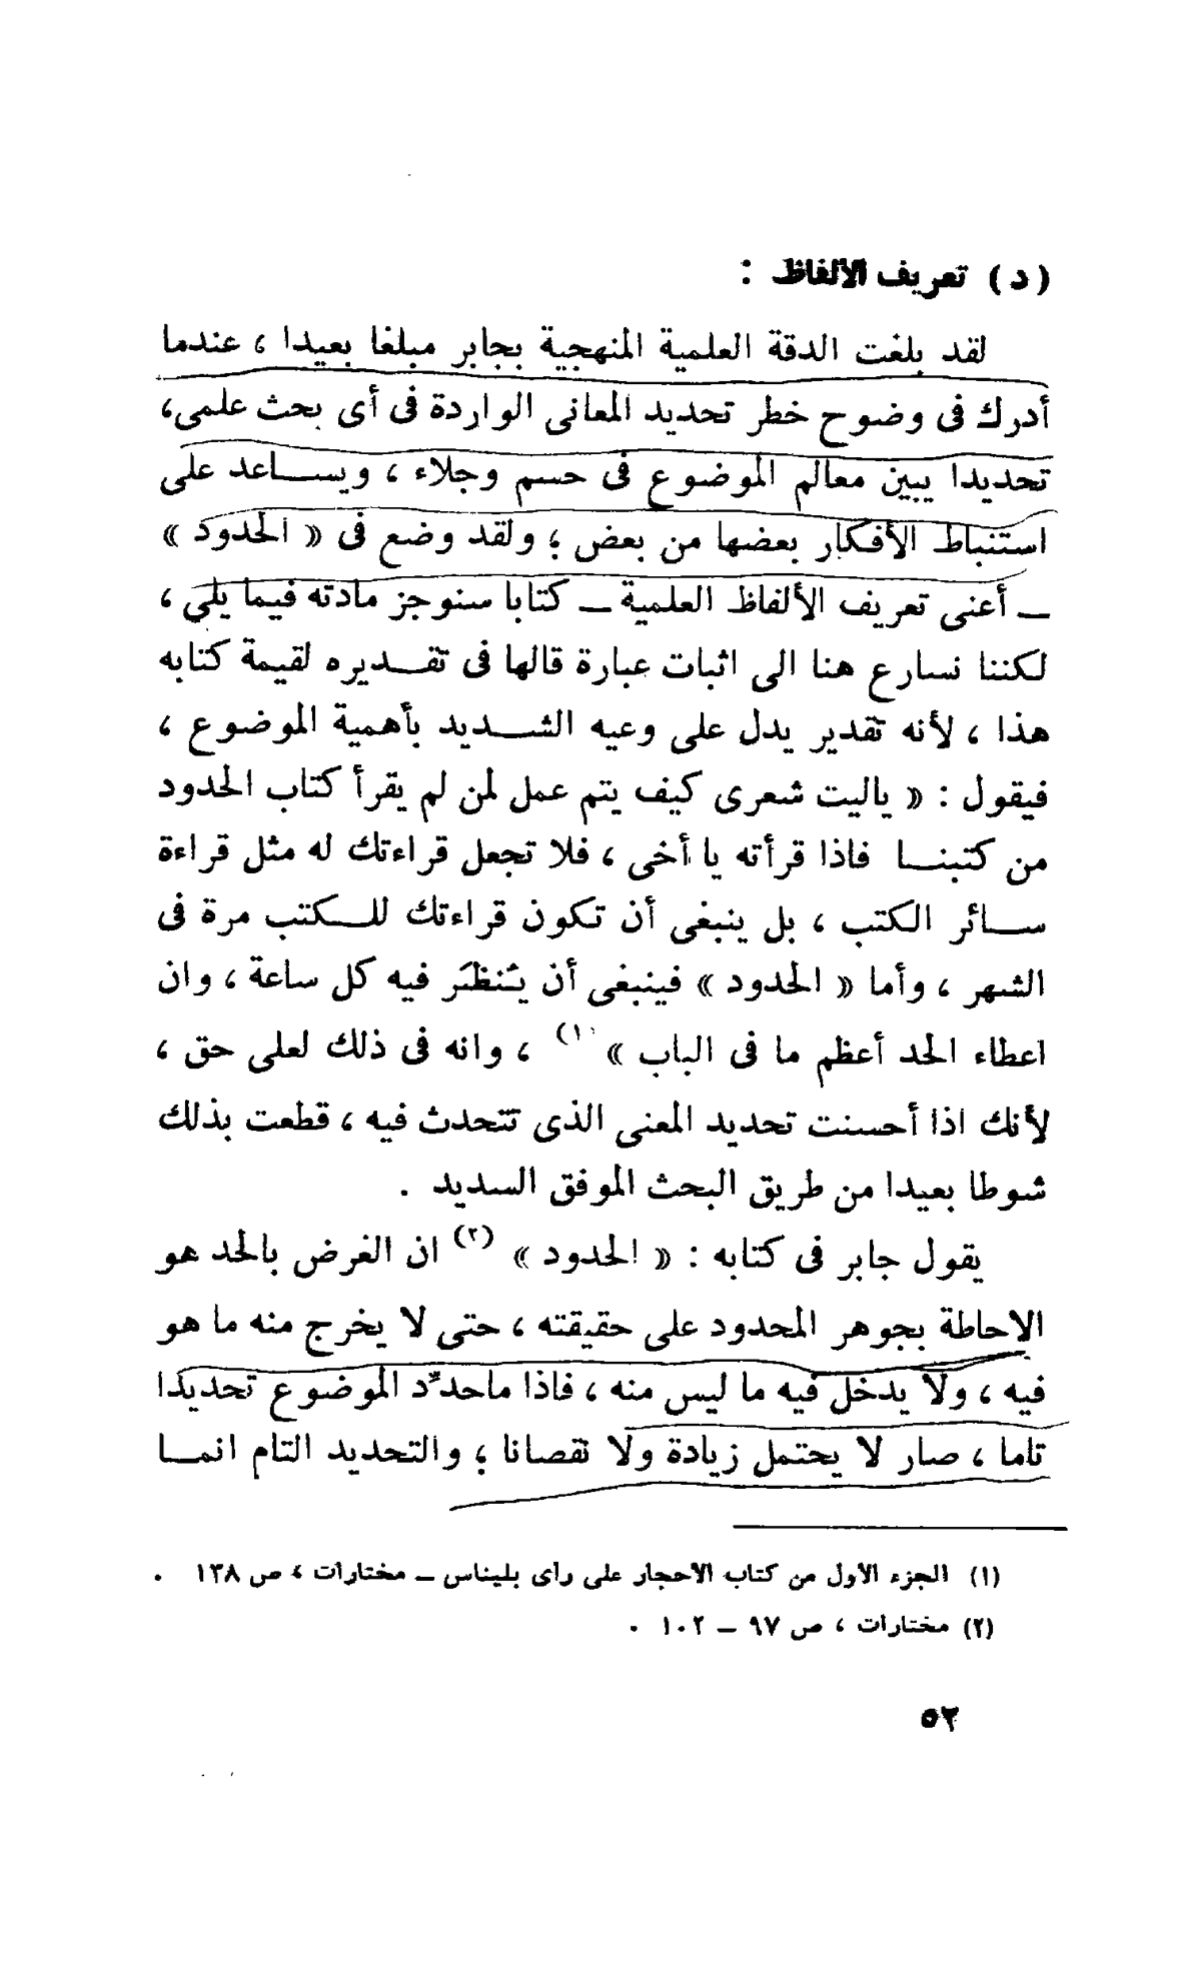 (د) تعريف الألفاظ :
لقد بلغت الدقة العلمية المنهجية بجابر مبلغا بعيدا ، عندما
أدرك فى وضوح خطر تحديد المعانى الواردة فى أى بحث علمى،
تحديدا يبين معالم الموضوع فى حسم وجلاء ، ويســاعد على
استنباط الأفكار بعضها من بعض ؛ ولقد وضع فى « الحدود »
ــ أعنى تعريف الألفاظ العلمية ــ كتابا سنوجز مادته فيما يلي ،
لكننا نسارع هنا الى اثبات عبارة قالها فى تقــديره لقيمة كتابه
هذا ، لأنه تقدير يدل على وعيه الشــديد بأهمية الموضوع ،
فيقول : « ياليت شعرى كيف يتم عمل لمن لم يقرأ كتاب الحدود
من كتبنــا فاذا قرأته يا أخى ، فلا تجعل قراءتك له مثل قراءة
ســائر الكتب ، بل ينبغى أن تكون قراءتك للــكتب مرة فى
الشهر ، وأما « الحدود » فينبغى أن يُنظَر فيه كل ساعة ، وان
اعطاء الحد أعظم ما فى الباب » (١) ، وانه فى ذلك لعلى حق ،
لأنك اذا أحسنت تحديد المعنى الذى تتحدث فيه ، قطعت بذلك
شوطا بعيدا من طريق البحث الموفق السديد .
يقول جابر فى كتابه : « الحدود » (٢) ان الغرض بالحد هو
الاحاطة بجوهر المحدود على حقيقته ، حتى لا يخرج منه ما هو
فيه ، ولا يدخل فيه ما ليس منه ، فاذا ماحدّد الموضوع تحديدا
تاما ، صار لا يحتمل زيادة ولا نقصانا ؛ والتحديد التام انمــا
(١) الجزء الأول من كتاب الأحجار على رأى بليناس ــ مختارات ، ص ١٣٨ .
(٢) مختارات ، ص ٩٧ ــ ١٠٢ .
٥٢